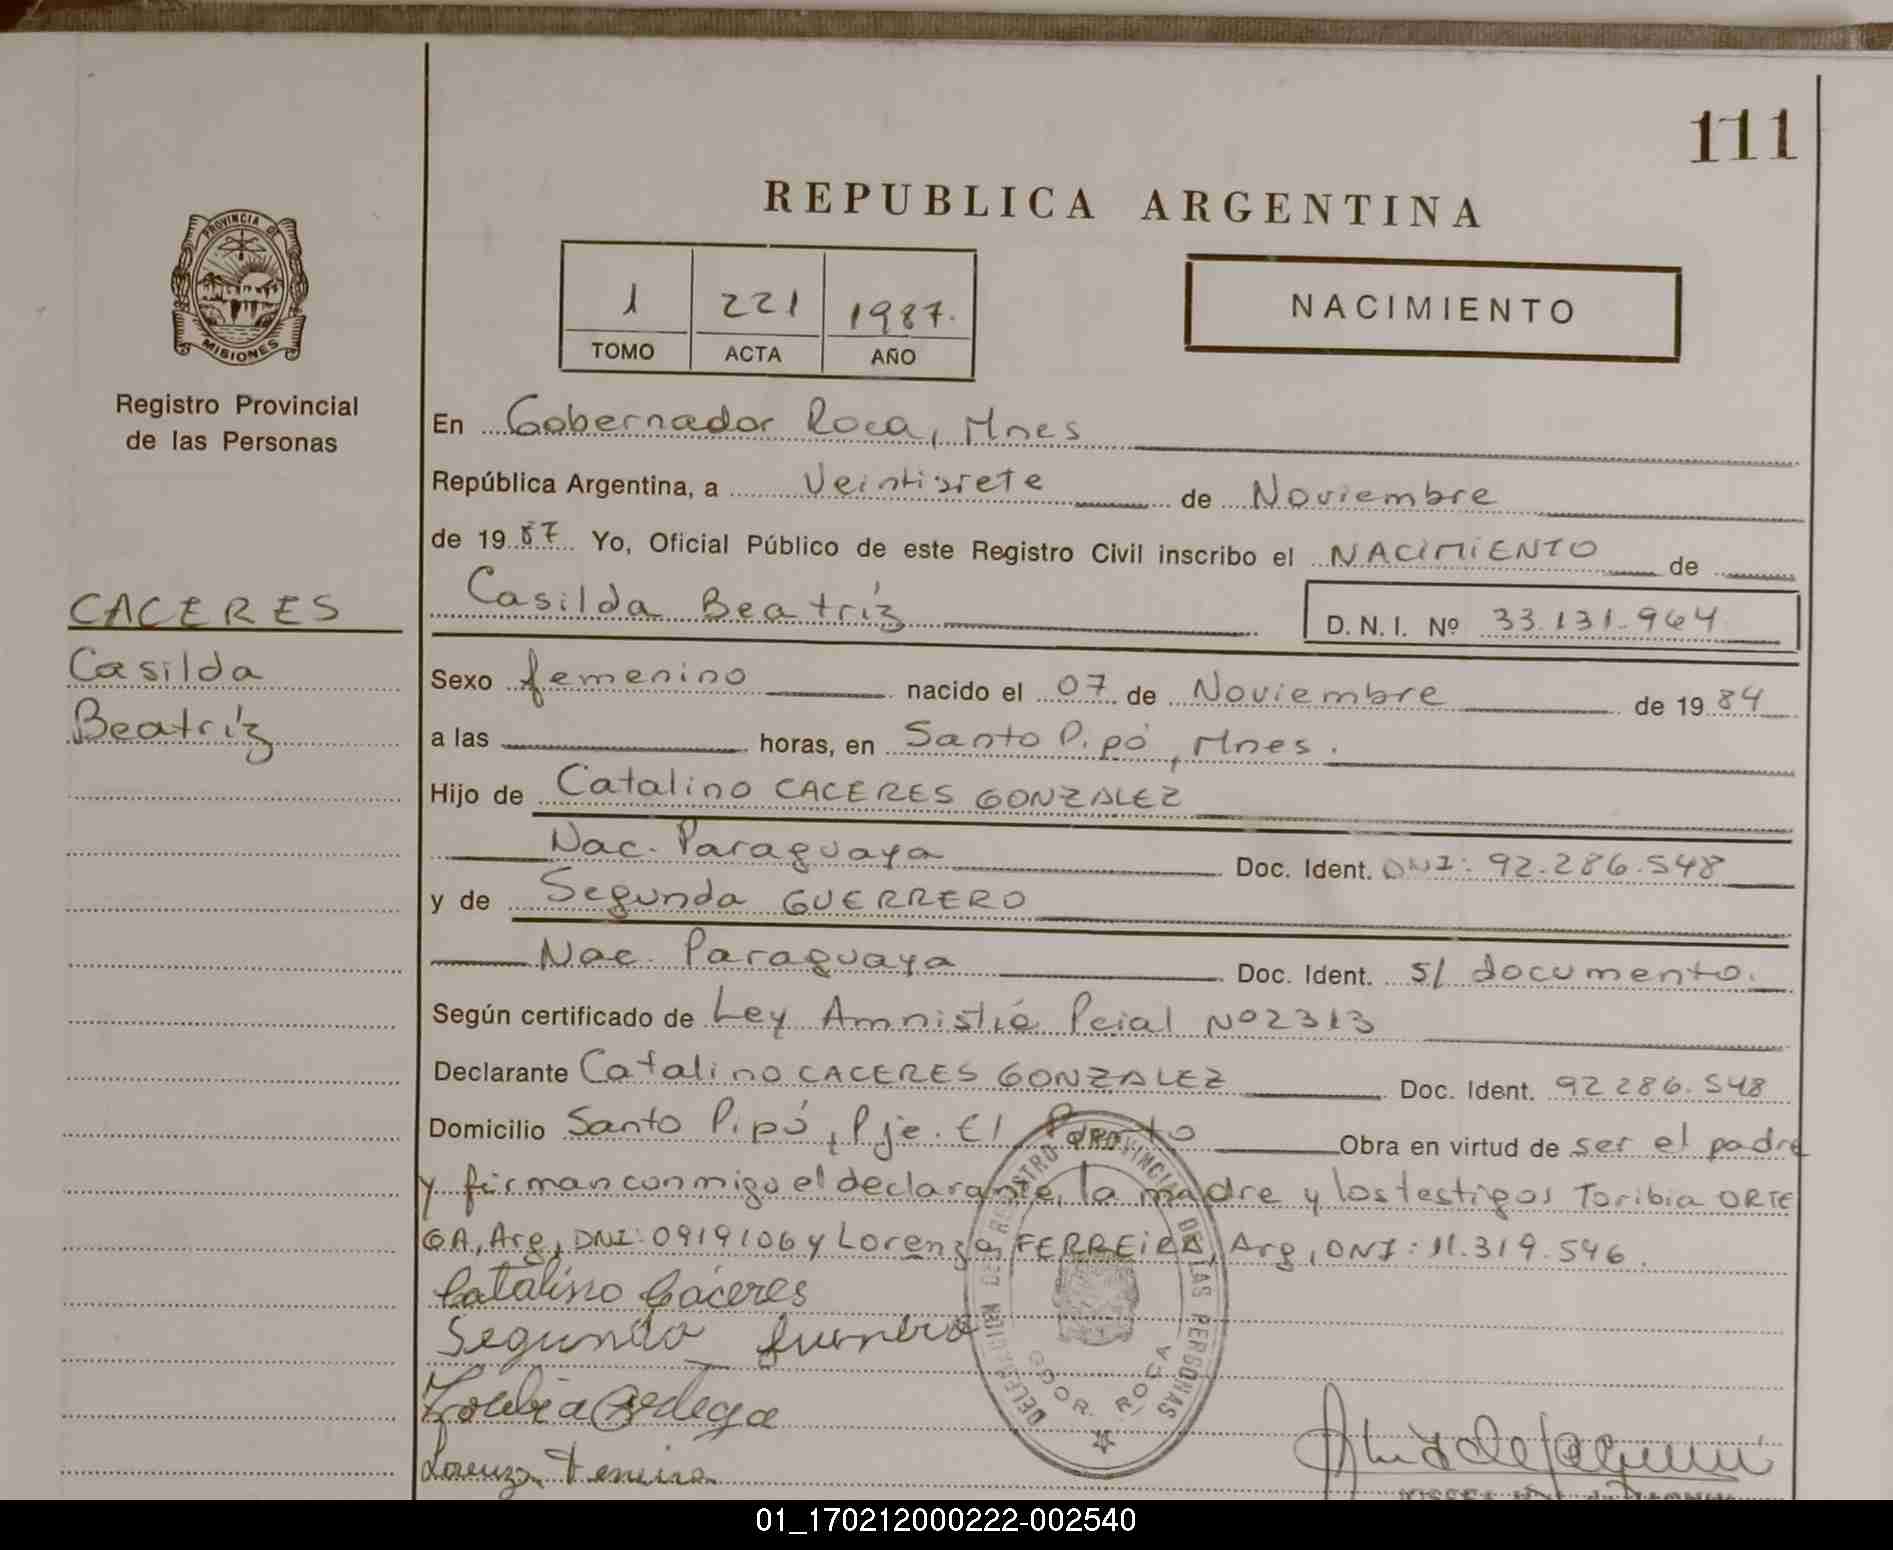 111
REPUBLICA ARGENTINA
PROVINCIA DE
MISIONES
Registro Provincial
de las Personas
1 221 1987.
TOMO ACTA AÑO
NACIMIENTO
En Gobernador Roca, Mnes
República Argentina, a Veintisiete de Noviembre
de 1987 Yo, Oficial Público de este Registro Civil inscribo el NACIMIENTO de
Casilda Beatríz D. N. I. Nº 33.131.964
CACERES
Casilda
Beatríz
Sexo femenino nacido el 07 de Noviembre de 1984
a las horas, en Santo Pipó, Mnes.
Hijo de Catalino CACERES GONZALEZ
Nac. Paraguaya Doc. Ident. DNI: 92.286.548
y de Segunda GUERRERO
Nac. Paraguaya Doc. Ident. s/ documento.
Según certificado de Ley Amnistía Pcial Nº 2313
Declarante Catalino CACERES GONZALEZ Doc. Ident. 92 286.548
Domicilio Santo Pipó, Pje. El Obra en virtud de ser el padre
y firman conmigo el declarante, la madre y los testigos Toribia ORTE
GA, Arg, DNI: 0919106 y Lorenza FERREIRA, Arg, DNI: 11.319.546.
Catalino Cáceres
Segunda
DELEGACION DEL REGISTRO PROVINCIAL DE LAS PERSONAS
GDOR. ROCA
01_170212000222-002540